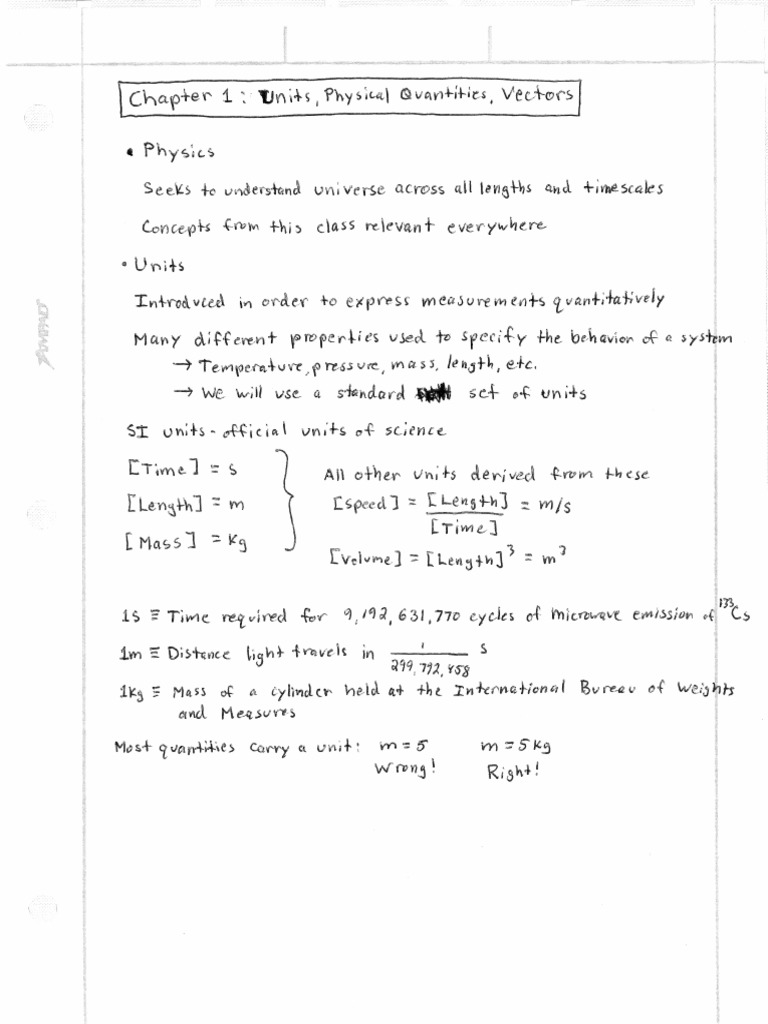 Chapter 1: Units, Physical Quantities, Vectors
• Physics
Seeks to understand universe across all lengths and timescales
Concepts from this class relevant everywhere
• Units
Introduced in order to express measurements quantitatively
Many different properties used to specify the behavior of a system
→ Temperature, pressure, mass, length, etc.
→ We will use a standard set of units
SI units - official units of science
[Time] = s
[Length] = m
[Mass] = kg
All other units derived from these
[Speed] = [Length]/[Time] = m/s
[Volume] = [Length]³ = m³
1s ≡ Time required for 9,192,631,770 cycles of microwave emission of ¹³³Cs
1m ≡ Distance light travels in 1/299,792,458 s
1kg ≡ Mass of a cylinder held at the International Bureau of Weights
and Measures
Most quantities carry a unit: m = 5 m = 5 kg
Wrong! Right!